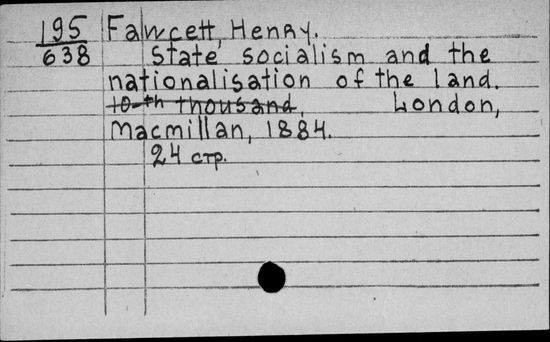 195 Fawcett, Henry.
638 State socialism and the
nationalisation of the land.
10-th thousand, London,
Macmillan, 1884.
24 стр.